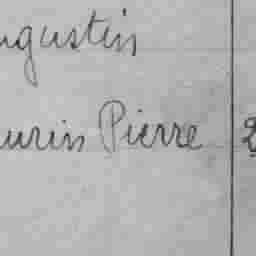 ugustin
urin Pierre 2